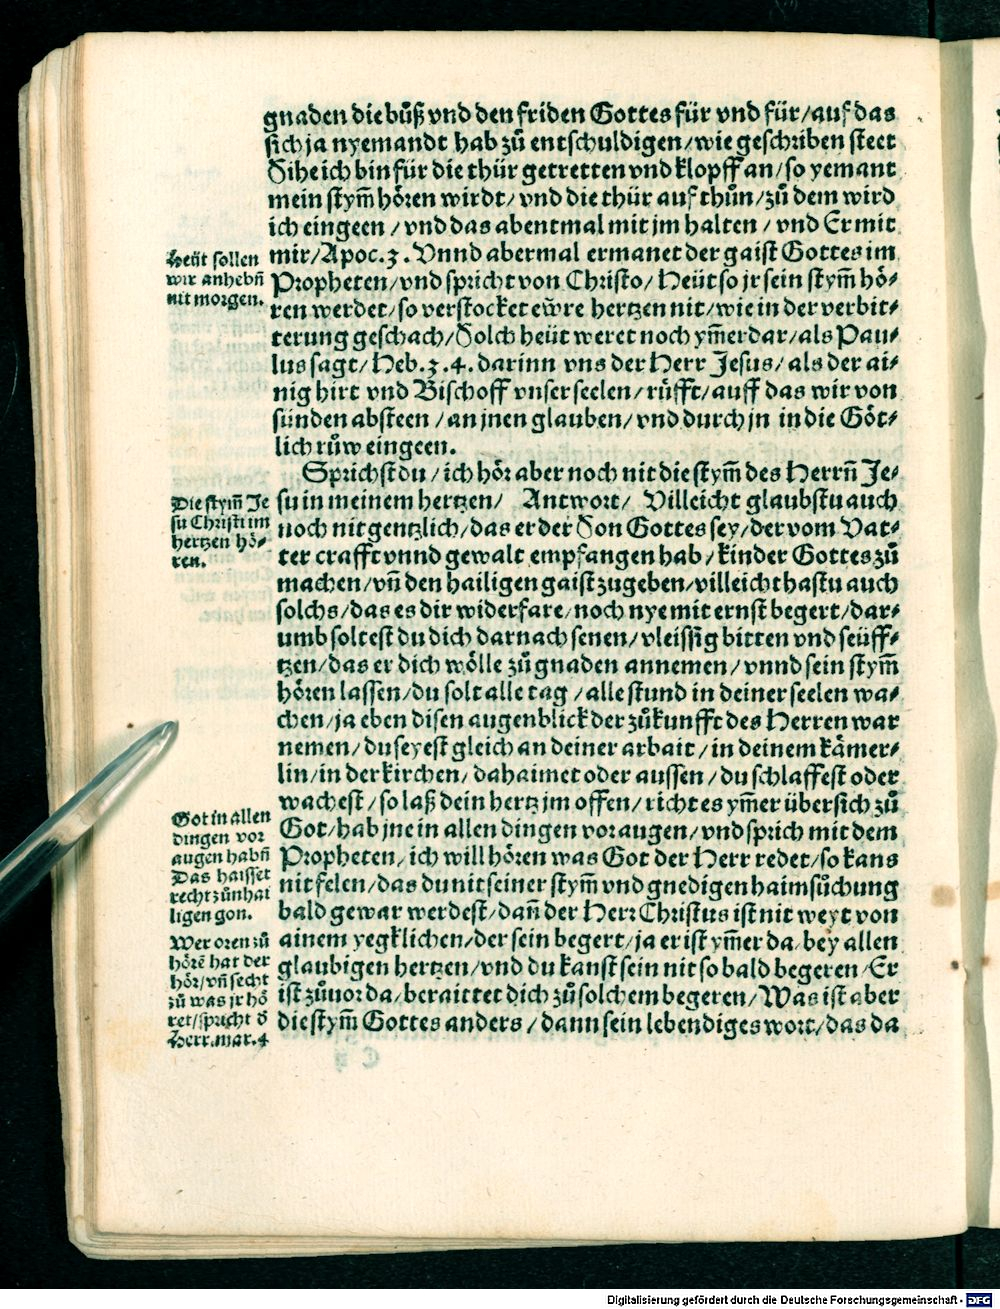 gnaden die bůß vnd den friden Gottes für vnd für/auf das
sich ja nyemandt hab zů entschuldigen/wie geschriben steet
Sihe ich bin für die thür getretten vnd klopff an/so yemant
mein stym̄ hören wirdt/vnd die thür auf thůn/zů dem wird
ich eingeen/vnd das abentmal mit jm halten/vnd Er mit
mir/Apoc.3. Vnnd abermal ermanet der gaist Gottes im
Propheten/vnd spricht von Christo/Heüt so jr sein stym̄ hö⸗
ren werdet/so verstocket ewre hertzen nit/wie in der verbit⸗
terung geschach/Solch heüt weret noch ym̄erdar/als Pau⸗
lus sagt/Heb.3.4. darinn vns der Herr Jesus/als der ai⸗
nig hirt vnd Bischoff vnser seelen/růfft/auff das wir von
sünden absteen/an jnen glauben/vnd durch jn in die Göt⸗
lich růw eingeen.
Heüt sollen
wir anhebn̄
nit morgen.
Sprichst du/ich hör aber noch nit die stym̄ des Herrn̄ Je⸗
su in meinem hertzen/ Antwort/ Villeicht glaubstu auch
noch nit gentzlich/das er der Son Gottes sey/der vom Vat⸗
ter crafft vnnd gewalt empfangen hab/kinder Gottes zů
machen/vn̄ den hailigen gaist zugeben/villeicht hastu auch
solchs/das es dir widerfare/noch nye mit ernst begert/dar⸗
umb soltest du dich darnach senen/vleissig bitten vnd seüff⸗
tzen/das er dich wölle zů gnaden annemen/vnnd sein stym̄
hören lassen/du solt alle tag/alle stund in deiner seelen wa⸗
chen/ja eben disen augenblick der zůkunfft des Herren war
nemen/du seyest gleich an deiner arbait/in deinem kämer⸗
lin/in der kirchen/dahaimet oder aussen/du schlaffest oder
wachest/so laß dein hertz jm offen/richt es ym̄er übersich zů
Got/hab jne in allen dingen vor augen/vnd sprich mit dem
Propheten/ich will hören was Got der Herr redet/so kans
nit felen/das du nit seiner stym̄ vnd gnedigen haimsůchung
bald gewar werdest/dan̄ der Herr Christus ist nit weyt von
ainem yegklichen/der sein begert/ja er ist ym̄er da/bey allen
glaubigen hertzen/vnd du kanst sein nit so bald begeren/Er
ist zůuor da/beraittet dich zů solchem begeren/Was ist aber
die stym̄ Gottes anders/dann sein lebendiges wort/das da
Die stym̄ Je
su Christi im
hertzen hö⸗
ren.
Got in allen
dingen vor
augen habn̄
Das haisset
recht zůn hai
ligen gon.
Wer oren zů
hörē hat der
hör/vn̄ secht
zů was jr hö
ret/spricht d̄
Herr.mar.4
Digitalisierung gefördert durch die Deutsche Forschungsgemeinschaft - DFG